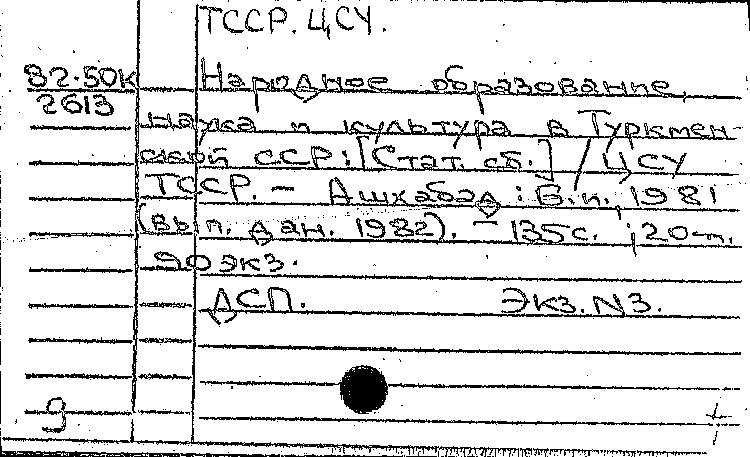 ТССР. ЦСУ.
82.50К Народное образование,
2613
наука и культура в Туркмен-
ской ССР: [Стат. сб.] / ЦСУ
ТССР. – Ашхабад : Б.и., 1981
(вып. дан. 1982). – 135с. ; 20см.
90экз.
ДСП. Экз. N3.
9